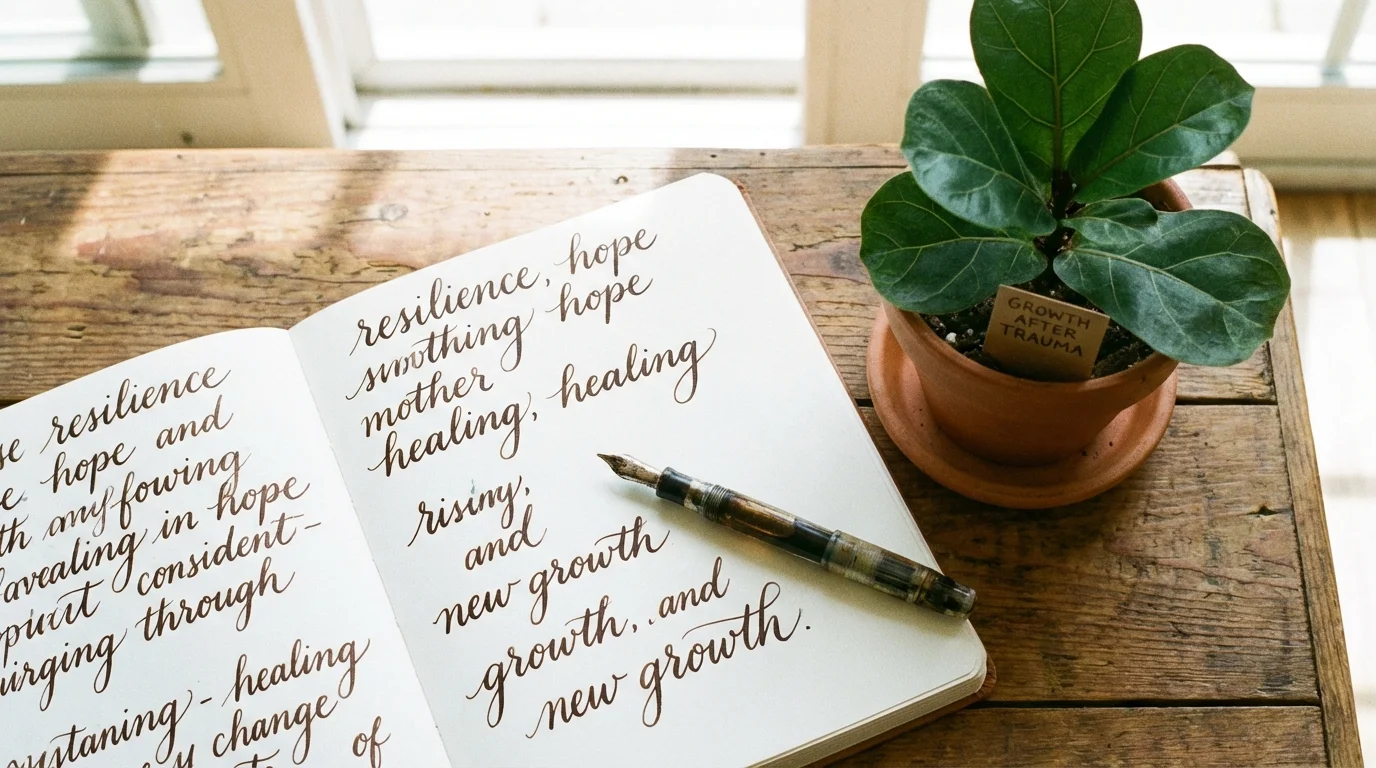 se resilience
e hope and
th anyfowing
avealing in hope
consident-
urging through
sustaning - healing
change
of
resilience, hope
smothing hope
mother
healing, healing
rising,
and
new growth
growth, and
new growth.
GROWTH
AFTER
TRAUMA